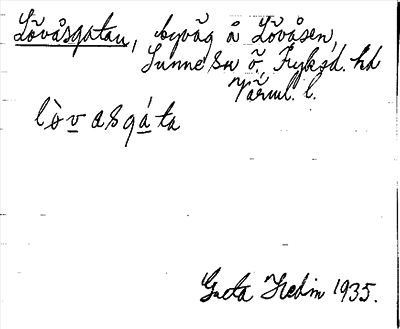 Lövåsgatan, byväg å Lövåsen,
Sunne sn ö, Fryksd. hd
Värml. l.
lò̱vasgá̱ta
Greta Hedin 1935.